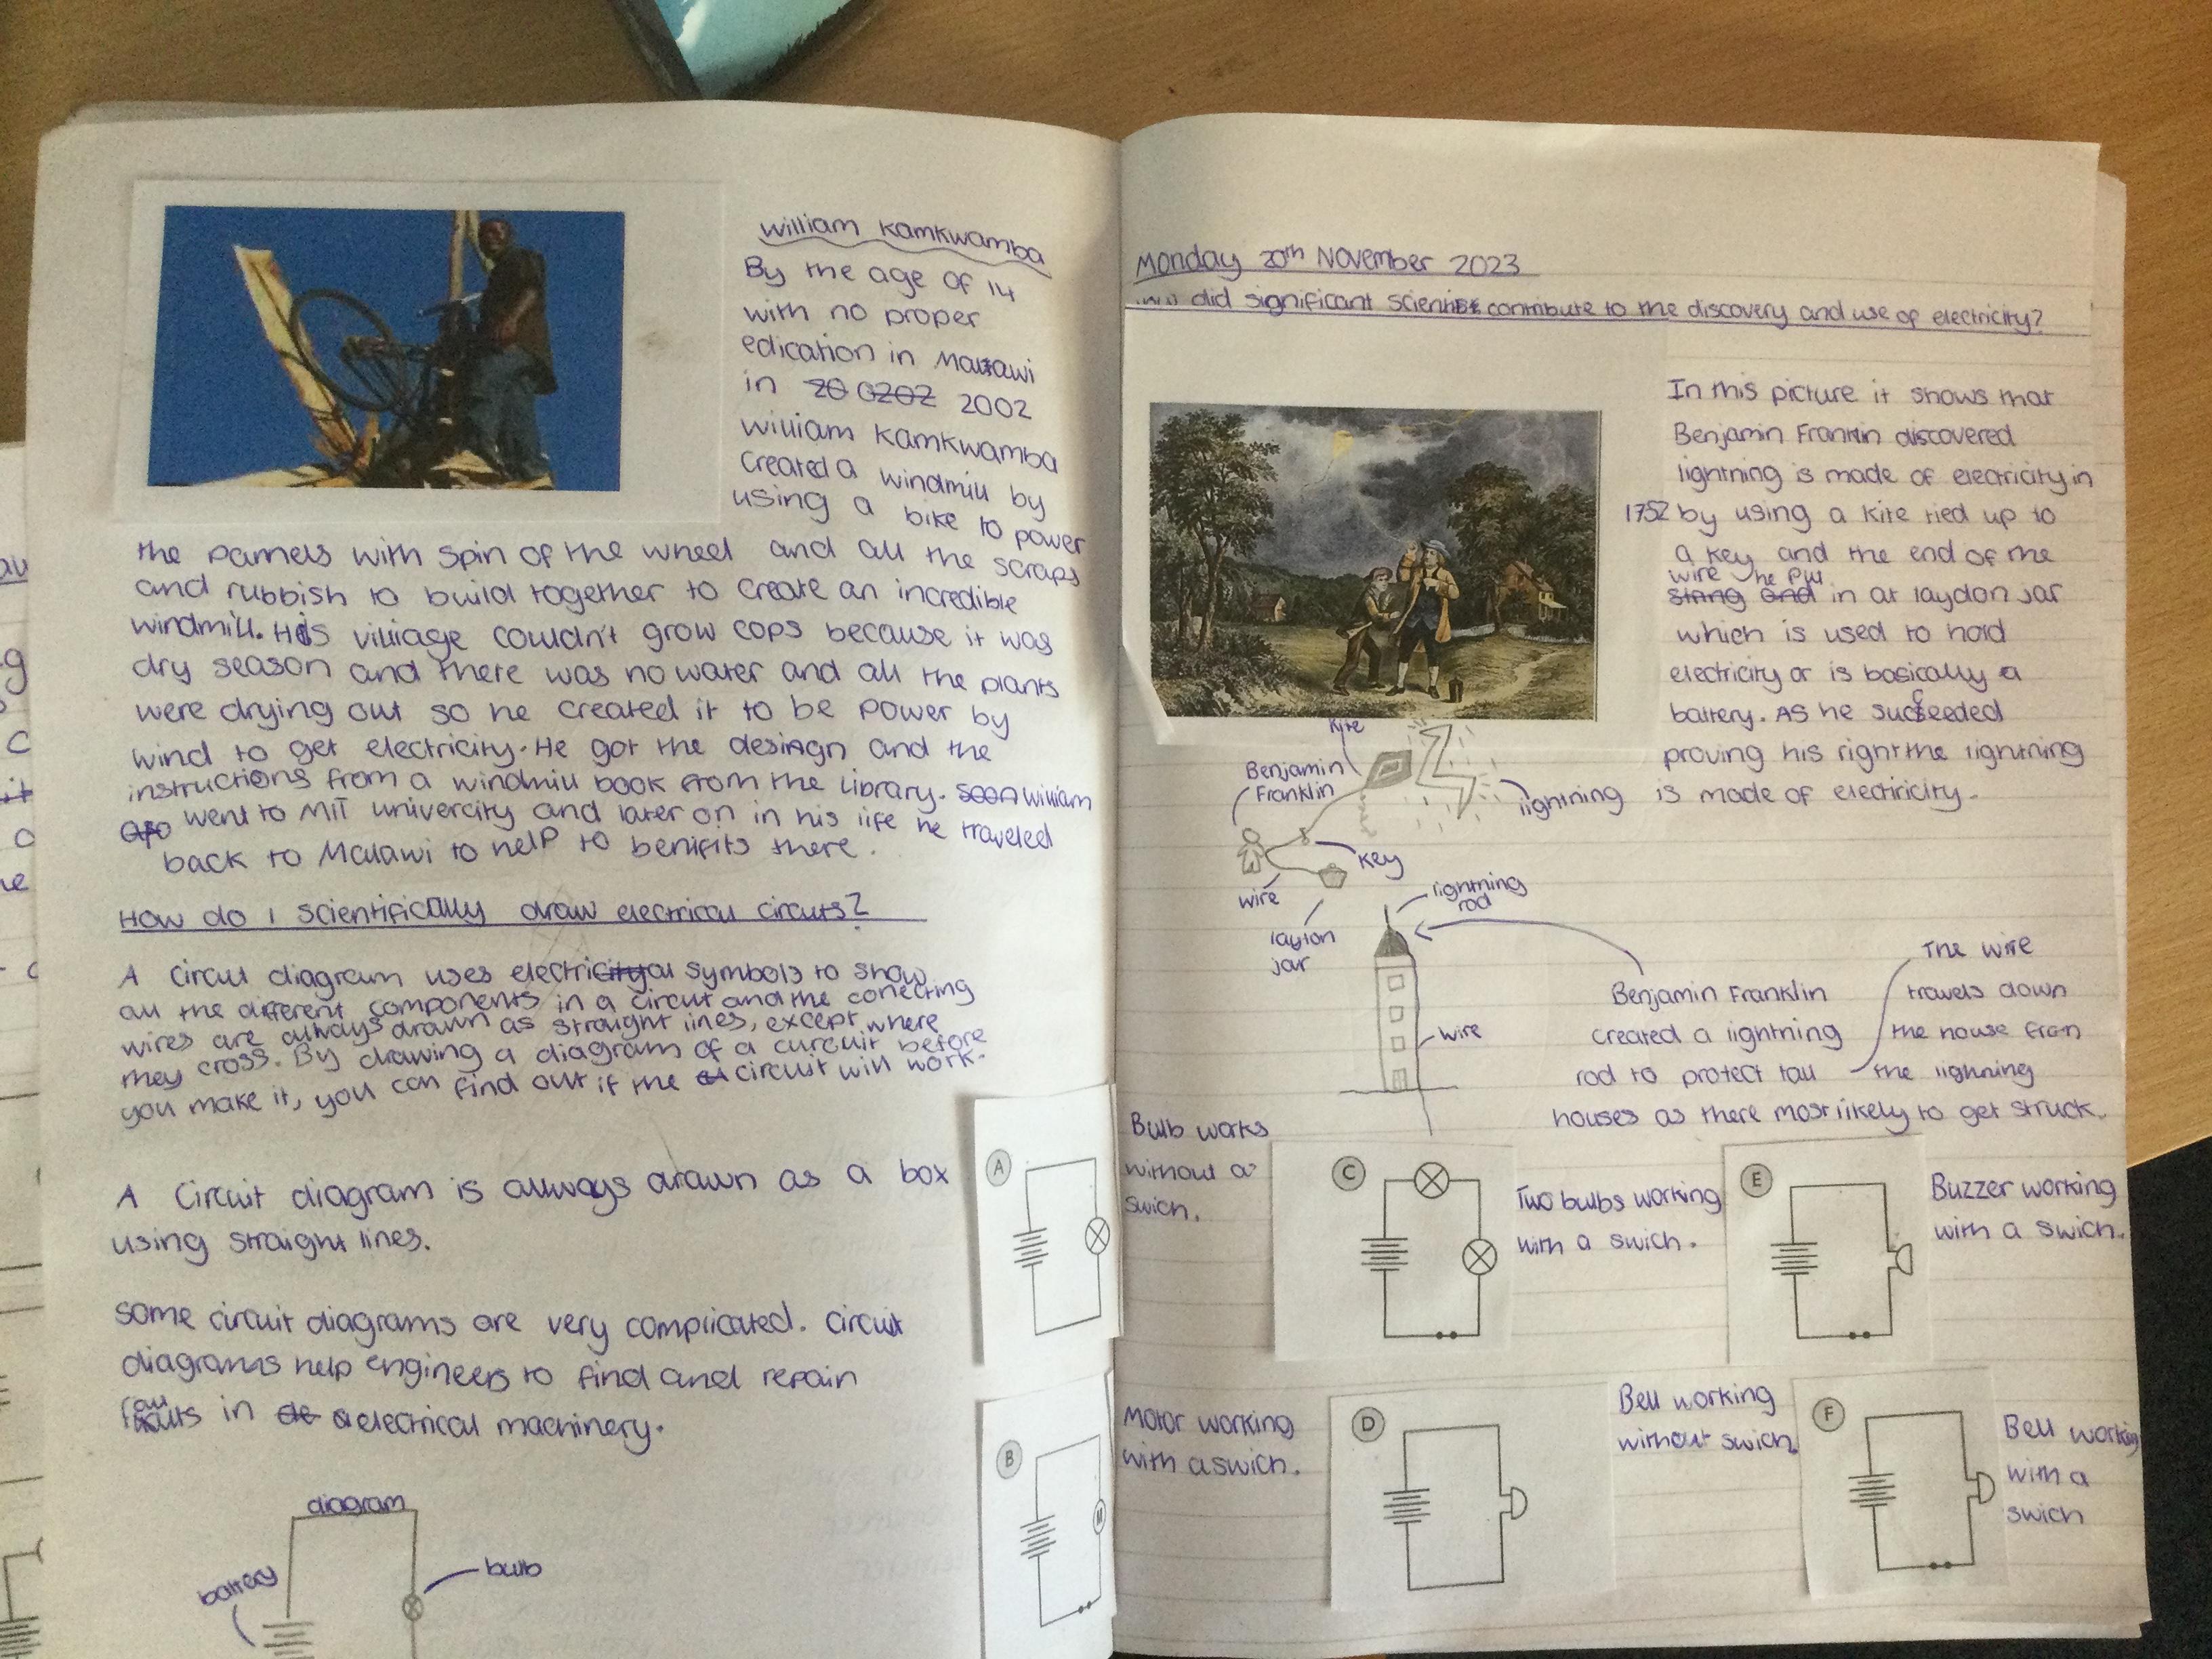 William Kamkwamba
By the age of 14
with no proper
edication in Malawi
in 2002
William Kamkwamba
created a windmill by
using a bike to power
the pannels with spin of the wheel and all the scraps
and rubbish to build together to create an incredible
windmill. His villiage couldn't grow cops because it was
dry season and there was no water and all the plants
were drying out so he created it to be power by
wind to get electricity. He got the design and the
instructions from a windmill book from the library. William
went to MIT univercity and later on in his life he traveled
back to Malawi to help to benifits there.
How do I scientifically draw electrical circuts?
A circut diagram uses electrical symbols to show
all the different components in a circut and the conecting
wires are always drawn as straight lines, except where
they cross. By drawing a diagram of a curcuit before
you make it, you can find out if the circuit will work.
A circuit diagram is always drawn as a box
using straight lines.
some circuit diagrams are very complicated. circuit
diagrams help engineers to find and repair
faults in electrical machinery.
diagram
battery
bulb
A
B
Monday 20th November 2023
did significant scientist contribute to the discovery and use of electricity?
In this picture it shows that
Benjamin Franklin discovered
lightning is made of electricity in
1752 by using a kite tied up to
a key and the end of the
wire he put
in at laydon jar
which is used to hold
electricity or is basically a
battery. As he succeeded
proving his right the lightning
is made of electiricity.
kite
Benjamin
Franklin
lightning
key
wire
laydon
jar
lightning
rod
wire
Benjamin Franklin
created a lightning
rod to protect tall
houses as there most likely to get struck.
The wire
travels down
the house from
the lighning
Bulb works
without a
swich.
C
Two bulbs working
with a swich.
E
Buzzer working
with a swich.
Motor working
with a swich.
D
Bell working
without swich.
F
Bell working
with a
swich
M